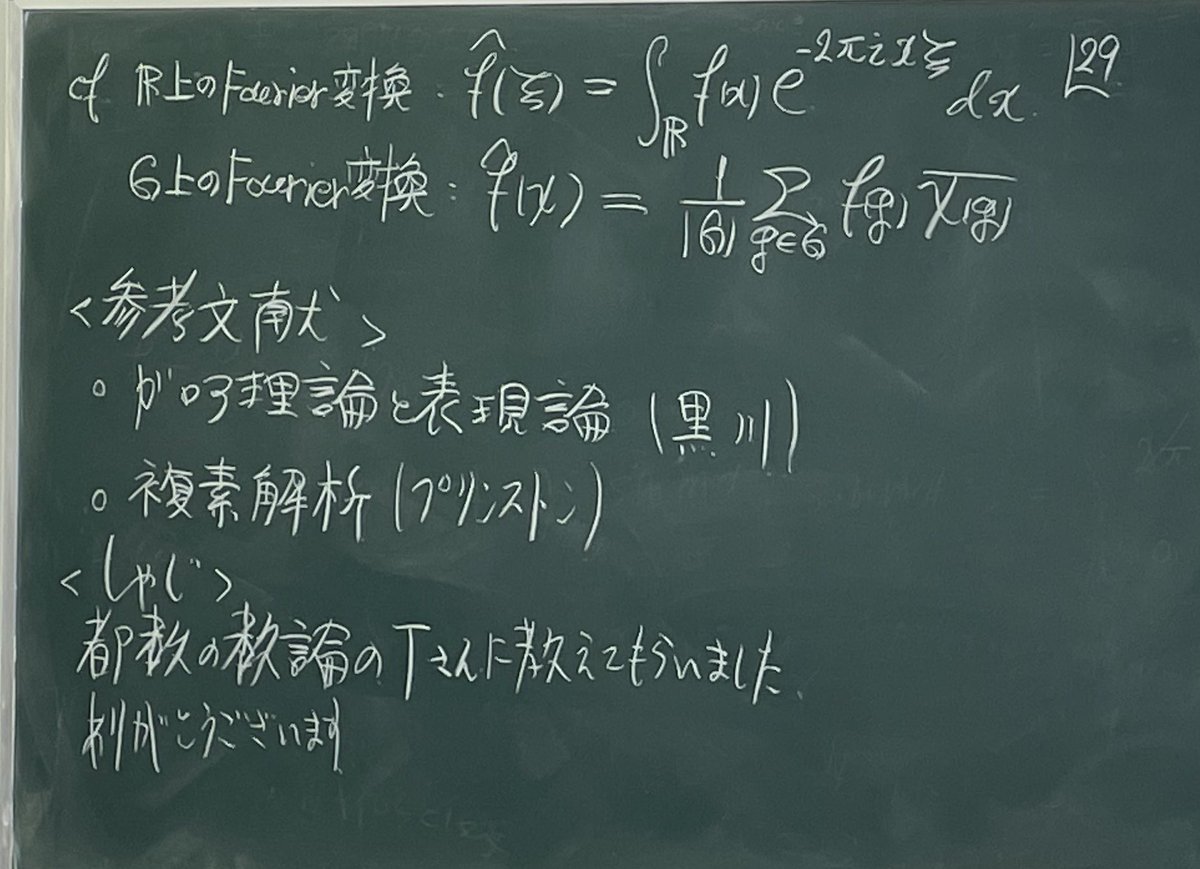 cf ℝ上のFourier変換: f̂(ξ) = ∫_ℝ f(x) e^{-2πixξ} dx. 29
G上のFourier変換: f̂(χ) = 1/|G| Σ_{g∈G} f(g) \overline{χ(g)}
<参考文献>
○ ガロア理論と表現論 (黒川)
○ 複素解析 (プリンストン)
<しゃじ>
都数の数論のTさんに教えてもらいました.
ありがとうございます